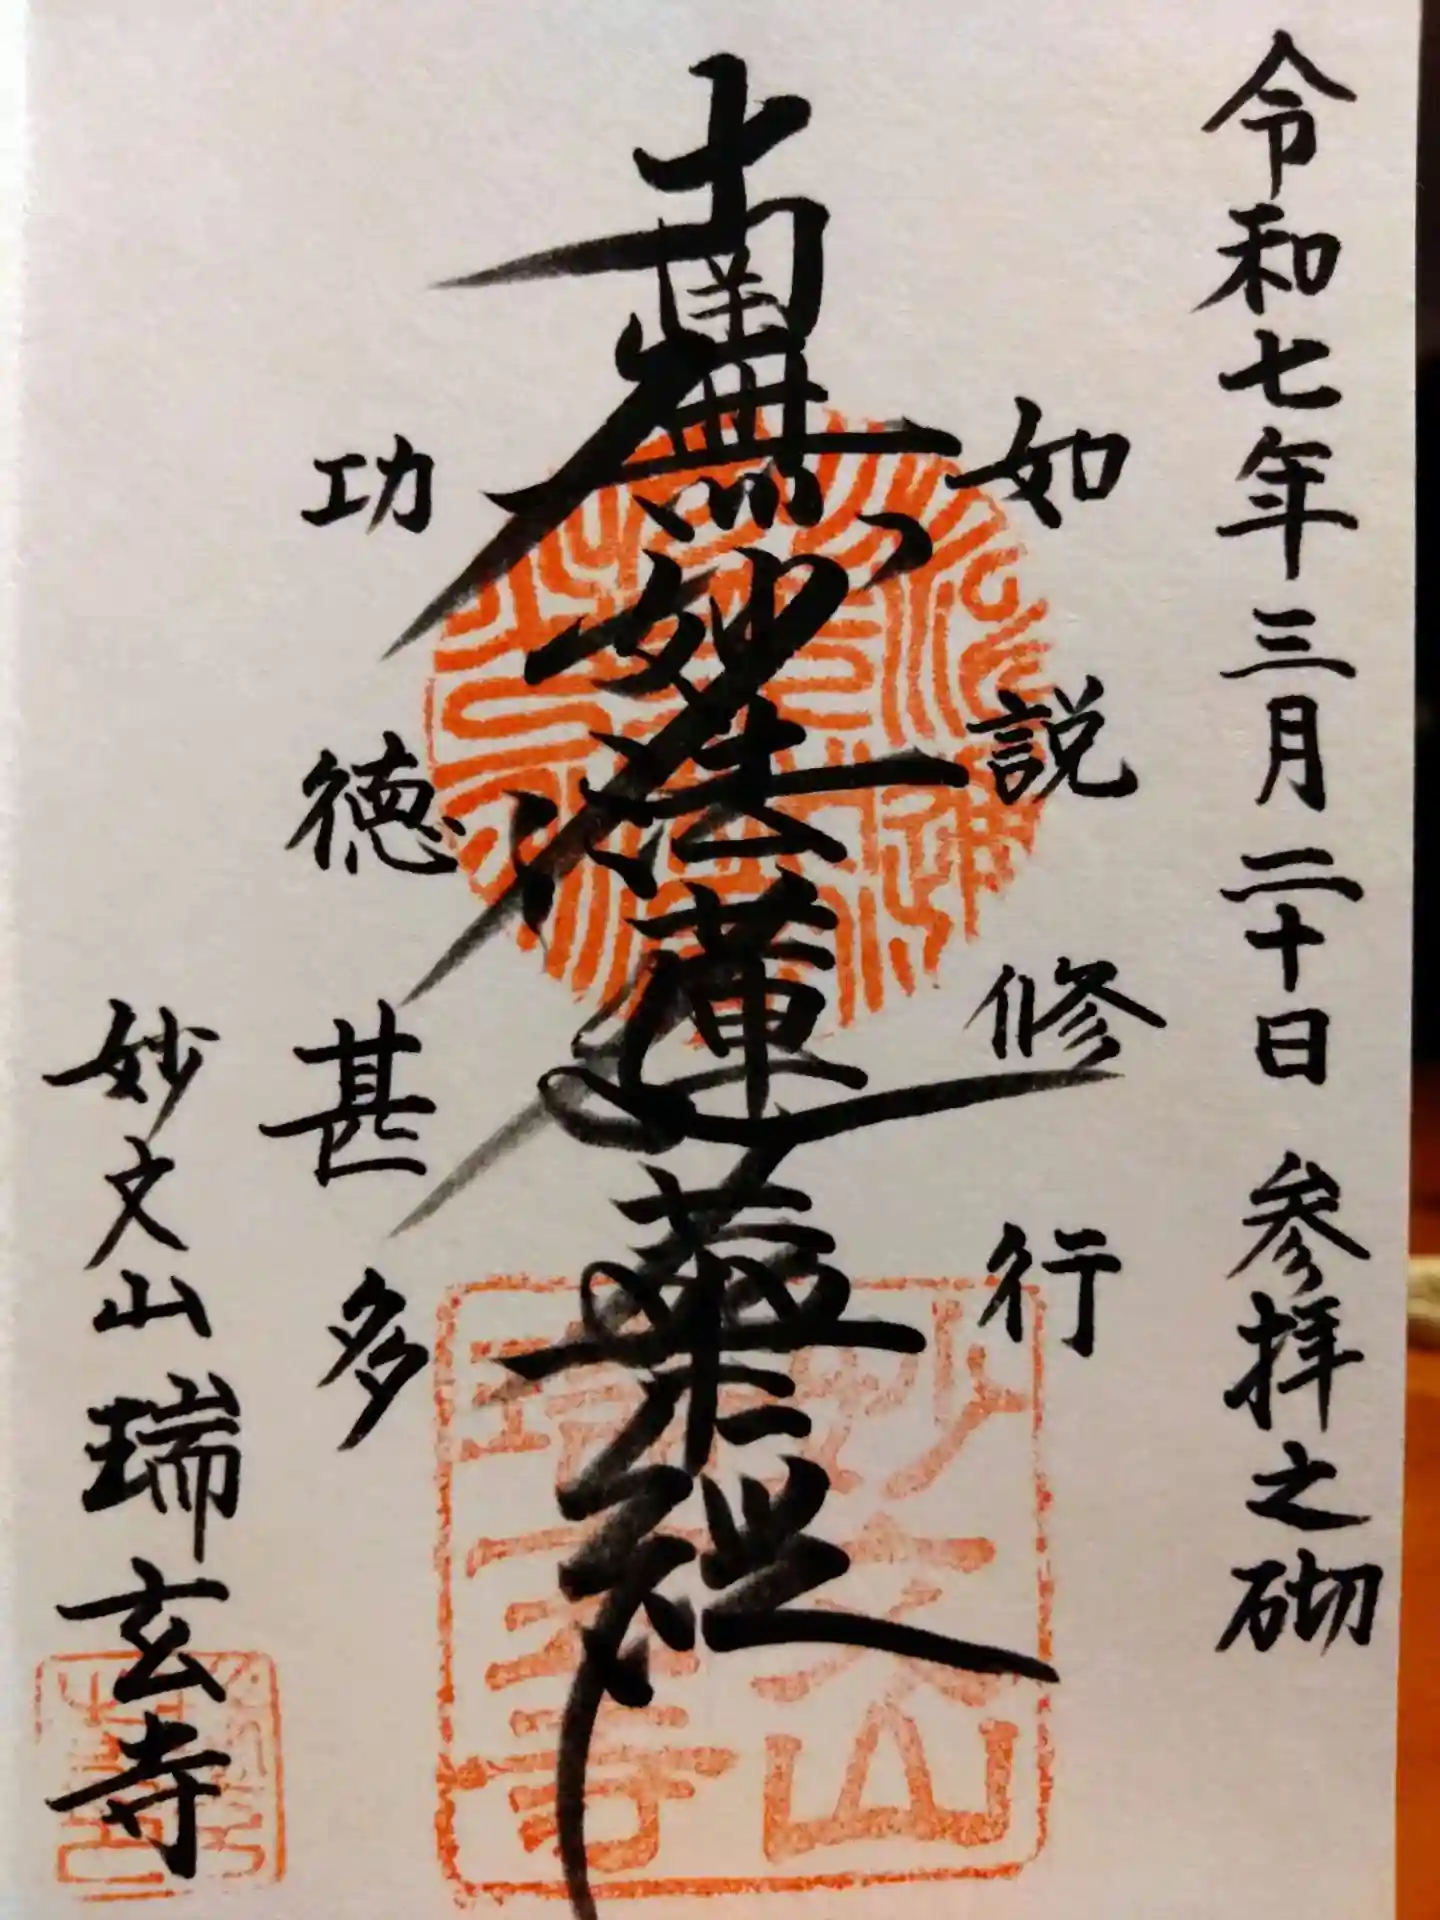 令和七年三月二十日 参拝之砌
如説修行
南無妙法蓮華経
功徳甚多
妙文山瑞玄寺
妙文山
瑞玄寺